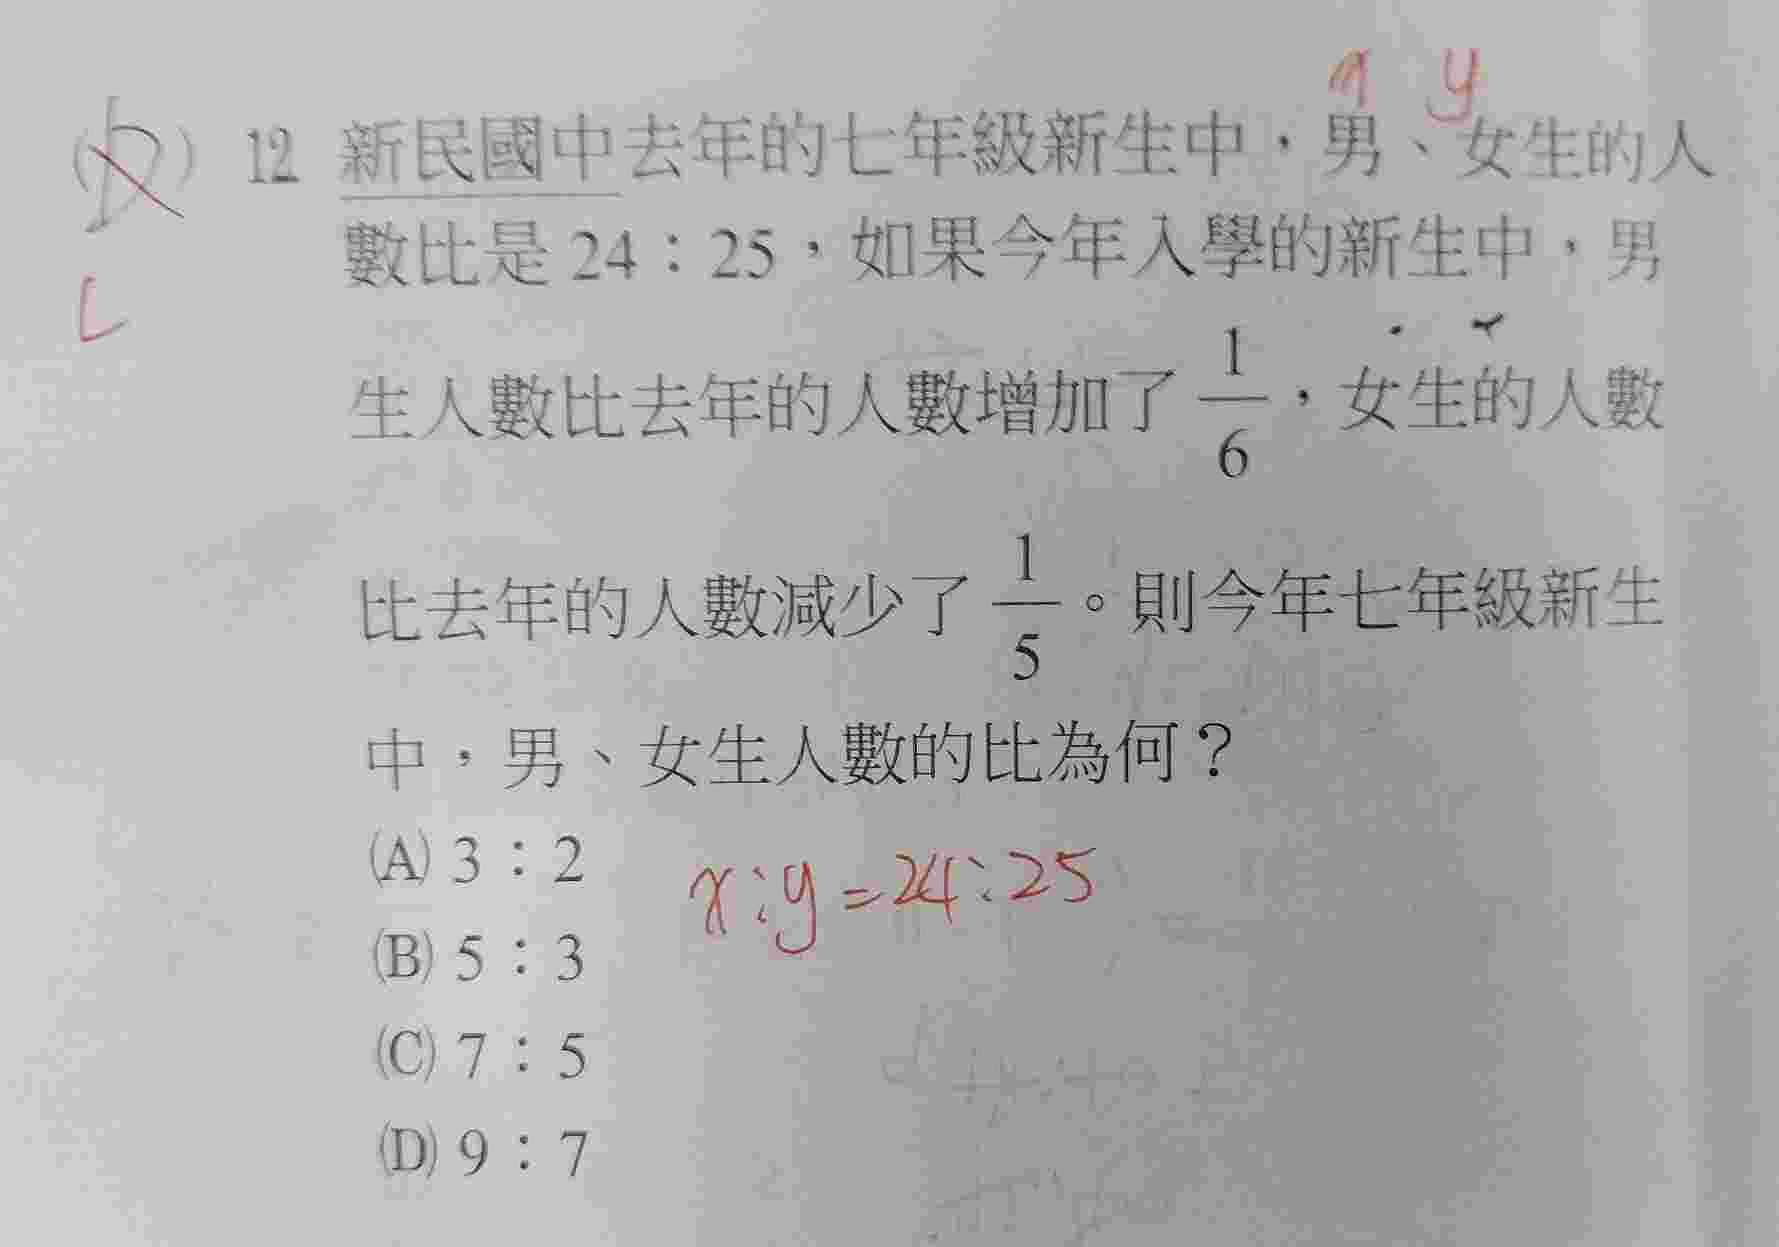 x y
12 新民國中去年的七年級新生中，男、女生的人
數比是 24：25，如果今年入學的新生中，男
生人數比去年的人數增加了 1/6，女生的人數
比去年的人數減少了 1/5。則今年七年級新生
中，男、女生人數的比為何？
(A) 3：2
x:y=24:25
(B) 5：3
(C) 7：5
(D) 9：7